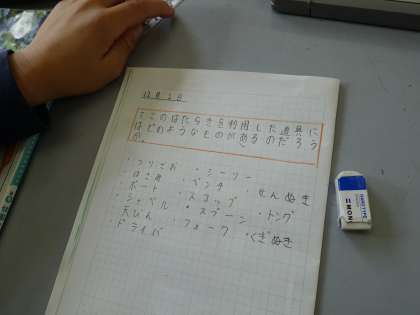 12月2日
てこのはたらきを利用した道具に
はどのようなものがあるのだろう
か。
・つりざお ・シーソー
・はさみ ・ペンチ ・せんぬき
・ボート ・スコップ
・シャベル ・スプーン ・トング
・天びん ・フォーク ・くぎぬき
・ドライバ
MONO